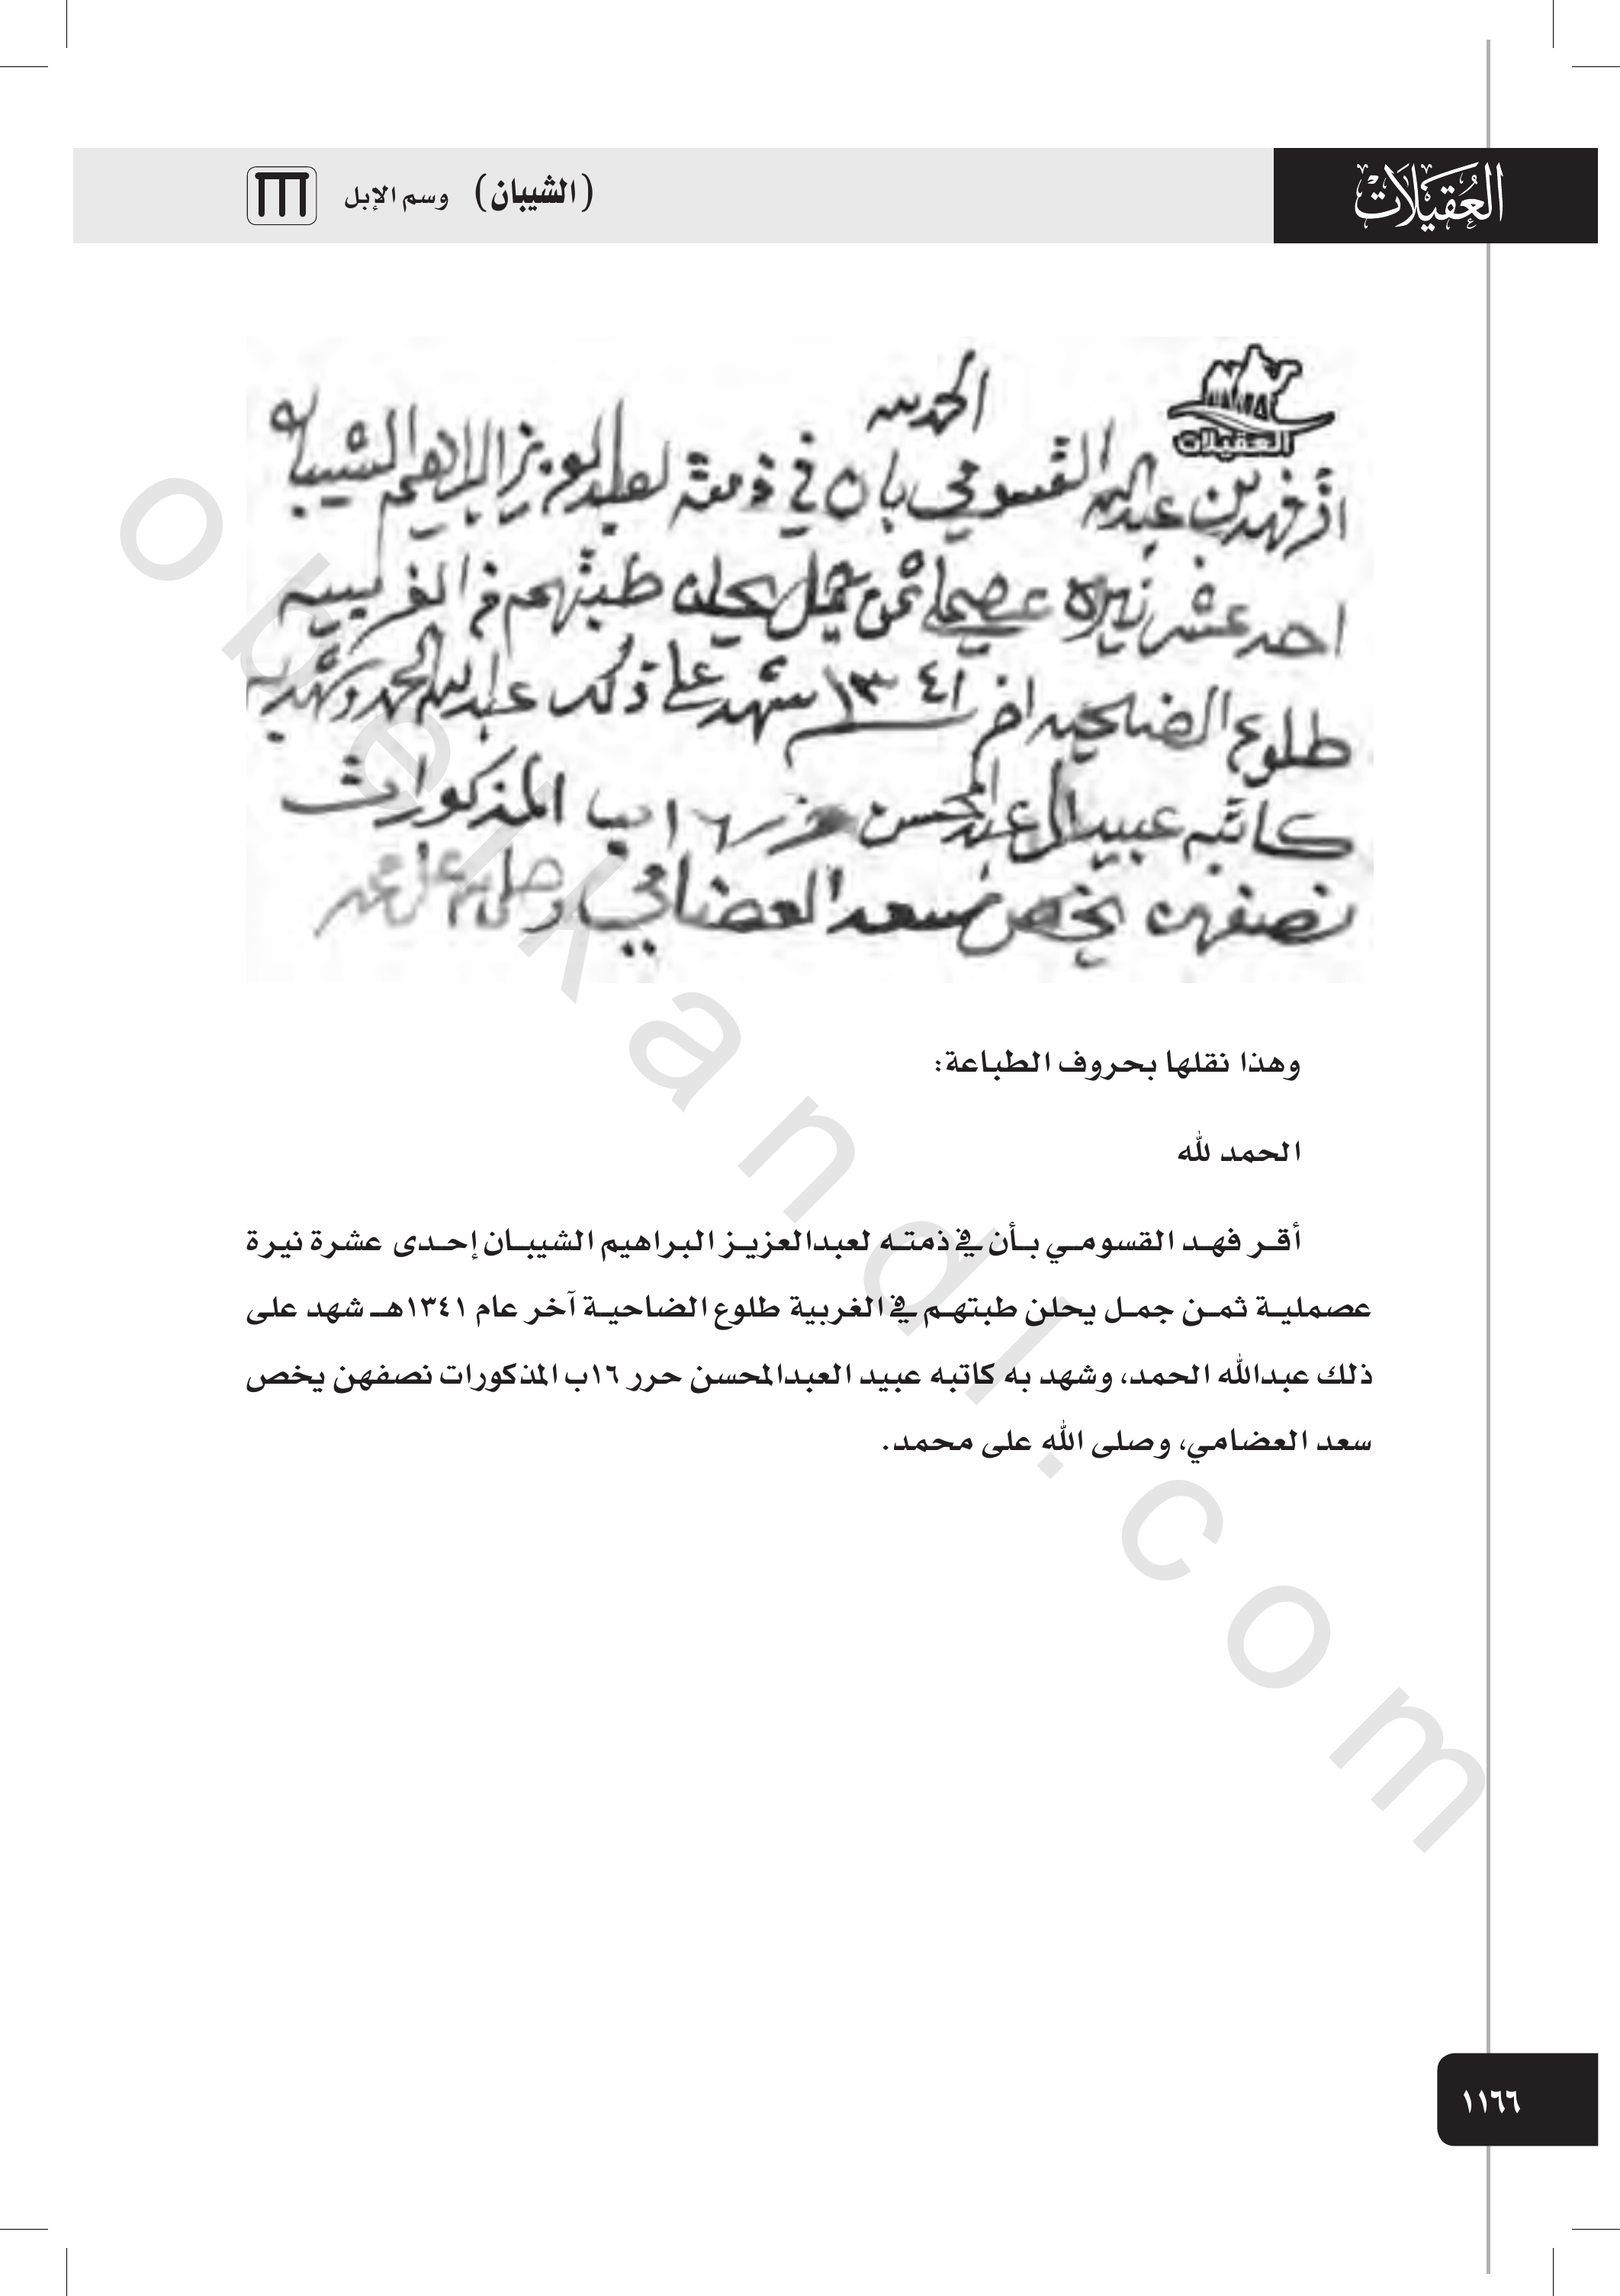 العُقَيلات
(الشيبان) وسم الإبل
الحمد لله
العقيلات
اقر فهد بن عبدالله القسومي بان في ذمته لعبدالعزيز البراهيم الشيبان
احد عشر نيره عصمليه ثمن جمل يحلن طبتهم في الغربيه
طلوع الضاحيه اخر ١٣٤١ شهد على ذلك عبدالله الحمد وشهد به
كاتبه عبيد العبدالمحسن المذكورات
نصفهن يخص سعد العضامي وصلى الله على محمد
وهذا نقلها بحروف الطباعة:
الحمد لله
أقر فهد القسومي بأن في ذمته لعبدالعزيز البراهيم الشيبان إحدى عشرة نيرة
عصملية ثمن جمل يحلن طبتهم في الغربية طلوع الضاحية آخر عام ١٣٤١هـ شهد على
ذلك عبدالله الحمد، وشهد به كاتبه عبيد العبدالمحسن حرر ١٦ب المذكورات نصفهن يخص
سعد العضامي، وصلى الله على محمد.
١١٦٦
obeikandl.com